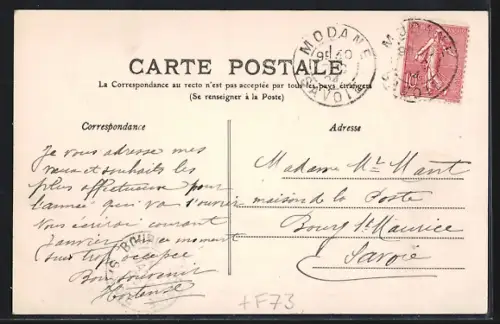 MODANE
SAVOIE
MODANE
CARTE POSTALE
La Correspondance au recto n'est pas acceptée par tous les pays étrangers
(Se renseigner à la Poste)
Correspondance
Je vous adresse mes
vœux et souhaits les
plus affectueux pour
l'année qui va s'ouvrir
Vous écrirai courant
Janvier ce moment
suis trop occupée
Bon souvenir
Hortense
Adresse
Madame Mt
maison de la Poste
Bourg St Maurice
Savoie
+F73